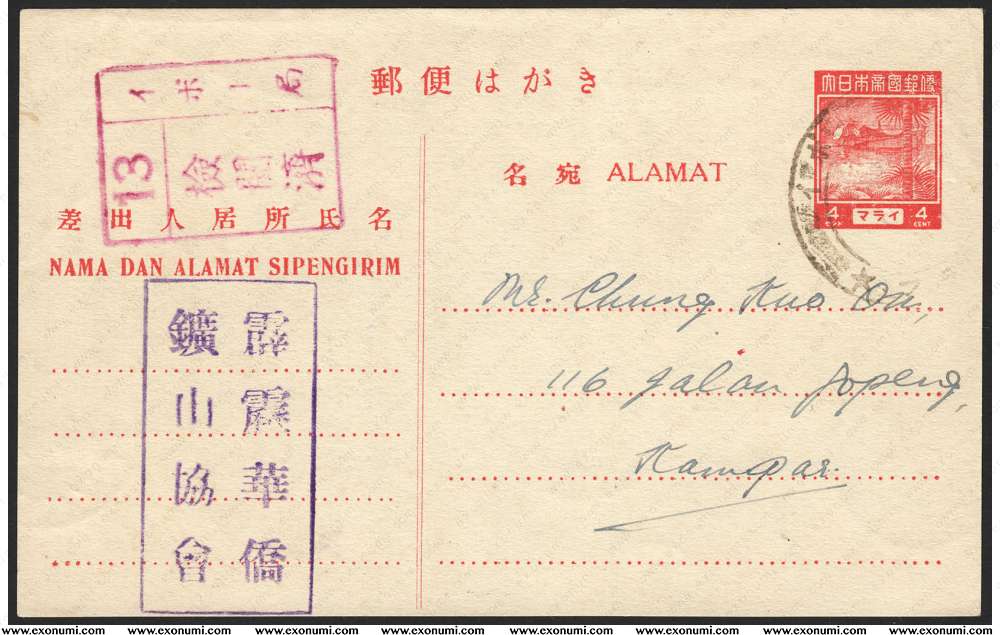 郵便はがき
大日本帝國郵便
4 CENT マライ 4 CENT
イポー局
13
検閲済
差出人居所氏名
NAMA DAN ALAMAT SIPENGIRIM
名宛 ALAMAT
霹靂華僑
鑛山協會
Mr. Chung Kuo
116 Jalan Gopeng,
Kampar.
www.exonumi.com www.exonumi.com www.exonumi.com www.exonumi.com www.exonumi.com www.exonumi.com www.exonumi.com www.exonumi.com